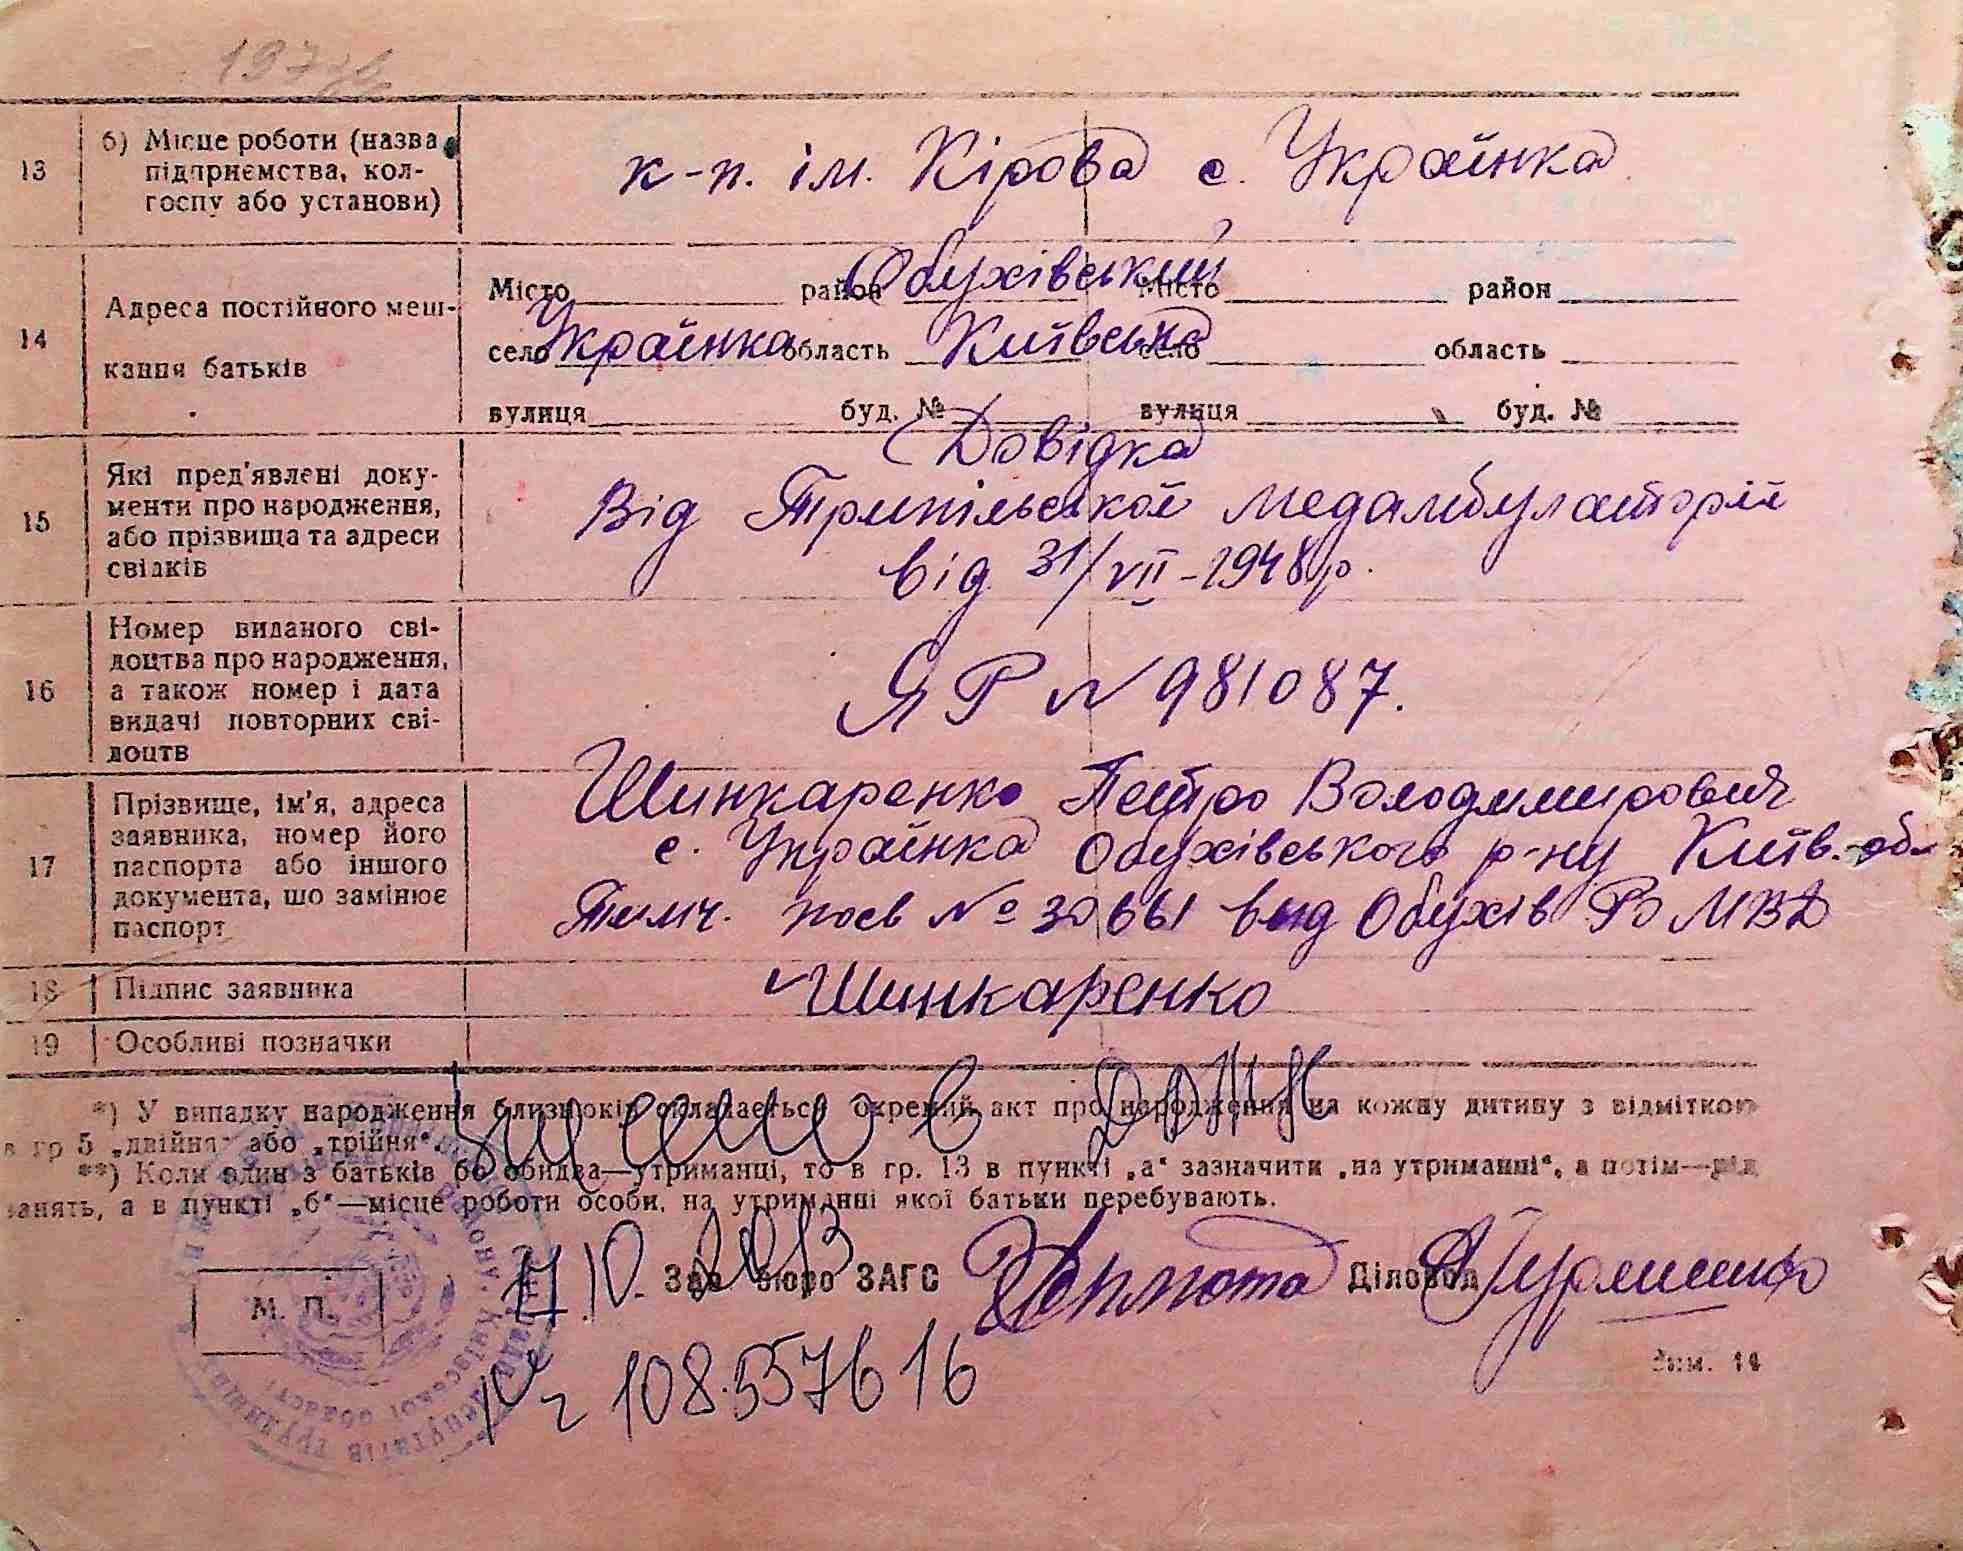 197 зв
13
б) Місце роботи (назва
підприємства, кол-
госпу або установи)
к-п. ім. Кірова с. Українка
14
Адреса постійного меш-
кання батьків
Місто район Обухівський Місто район
село Українка область Київська село область
вулиця буд. № вулиця буд. №
15
Які пред'явлені доку-
менти про народження,
або прізвища та адреси
свідків
Довідка
Від Трипільської медамбулаторії
від 31/VII-1948 р.
16
Номер виданого сві-
доцтва про народження,
а також номер і дата
видачі повторних сві-
доцтв
ЯР N 981087.
17
Прізвище, ім'я, адреса
заявника, номер його
паспорта або іншого
документа, що замінює
паспорт
Шинкаренко Петро Володимирович
с. Українка Обухівського р-ну Київ. обл
Тимч. посв № 30661 вид Обухів РО МВД
18
Підпис заявника
Шинкаренко
19
Особливі позначки
*) У випадку народження близнюків складається окремий акт про народження на кожну дитину з відміткою
в гр 5 „двійня" або „трійня".
**) Коли один з батьків бо обидва—утриманці, то в гр. 13 в пункті „а" зазначити „на утриманні", а потім—рід
занять, а в пункті „б"—місце роботи особи, на утриманні якої батьки перебувають.
М. П.
Зав бюро ЗАГС
Діловод
108.557616
Зим. 14